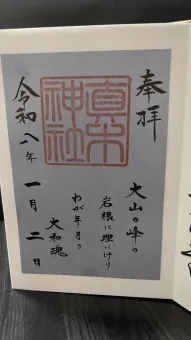 奉拝
真木
神社
大山の峰の
岩根に埋にけり
わが年月の
大和魂
令和八年一月二日